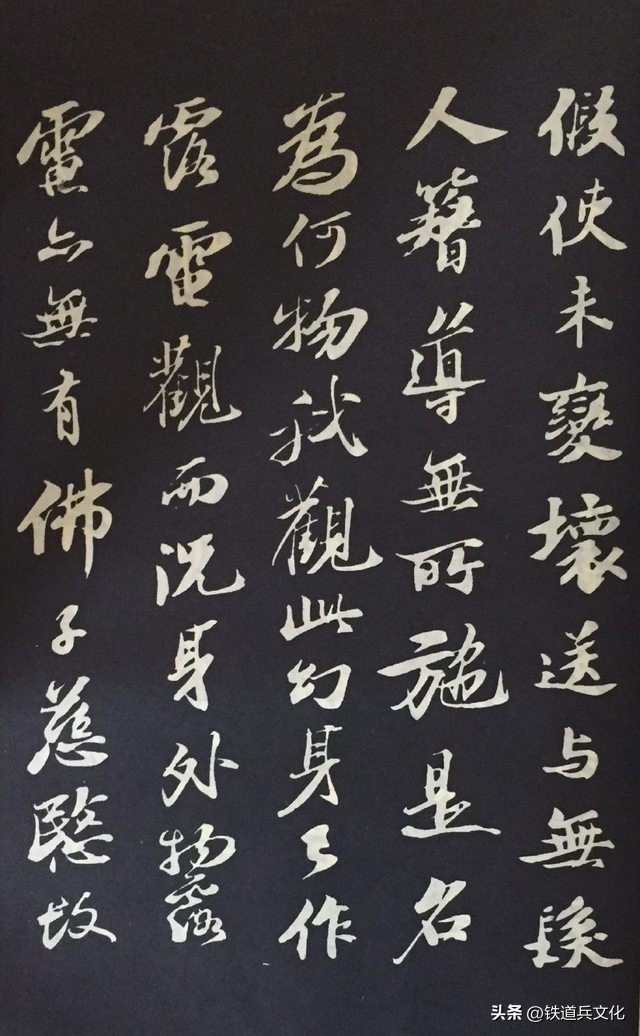 假使未變壞送与無髮
人簪導無所施是名
為何物我觀此幻身已作
露電觀而況身外物露
電亦無有佛子慈愍故
头条 @铁道兵文化